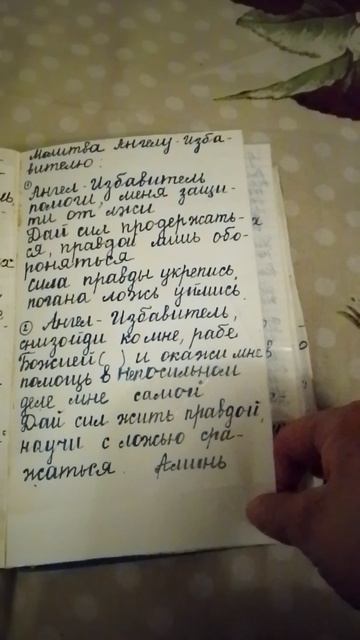 Молитва Ангелу-Изба-
вителю:
① Ангел-Избавитель
помоги, меня защи-
ти от лжи
Дай сил продержать-
ся, правдой лишь обо-
роняться
сила правды укрепись,
погана ложь уймись
② Ангел-Избавитель,
снизойди ко мне, рабе
Божией ( ) и окажи мне
помощь в непосильном
деле мне самой
Дай сил жить правдой,
научи с ложью сра-
жаться. Аминь